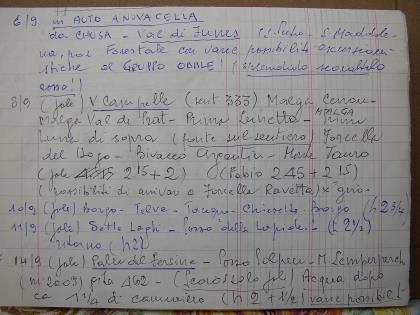 6/9 in AUTO A NOVACELLA
da CHIUSA - Val di Funes (S. Pietro - S. Maddale-
na, poi Forestale con varie possibilità escursioni-
stiche al GRUPPO ODDLE! (splendido
8/9 (jole) V Campelle (sent 333) Malga
Malga Val di Prat - Prima Lunetta - MALGA
Luna di sopra (fonte sul sentiero) Forcella
del Dogo - Bivacco Argentin - Monte Tauro
(jole 215 + 2) (Fabio 245 + 215)
(possibilità di arrivare a Forcella Ravetta) + giro
10/9 (jole) Borgo - Telve - Torcegno - Borgo (h 2 3/4)
11/9 (jole) Sette Laghi - Passo della Lapide - (h 2 1/2)
ritorno (h 2)
14/9 (jole) Palù del Fersina - Passo
(m 2009) gita 462 - Acqua dopo
ca 1 1/4 di cammino (h 2 + 1/2) varie possibil